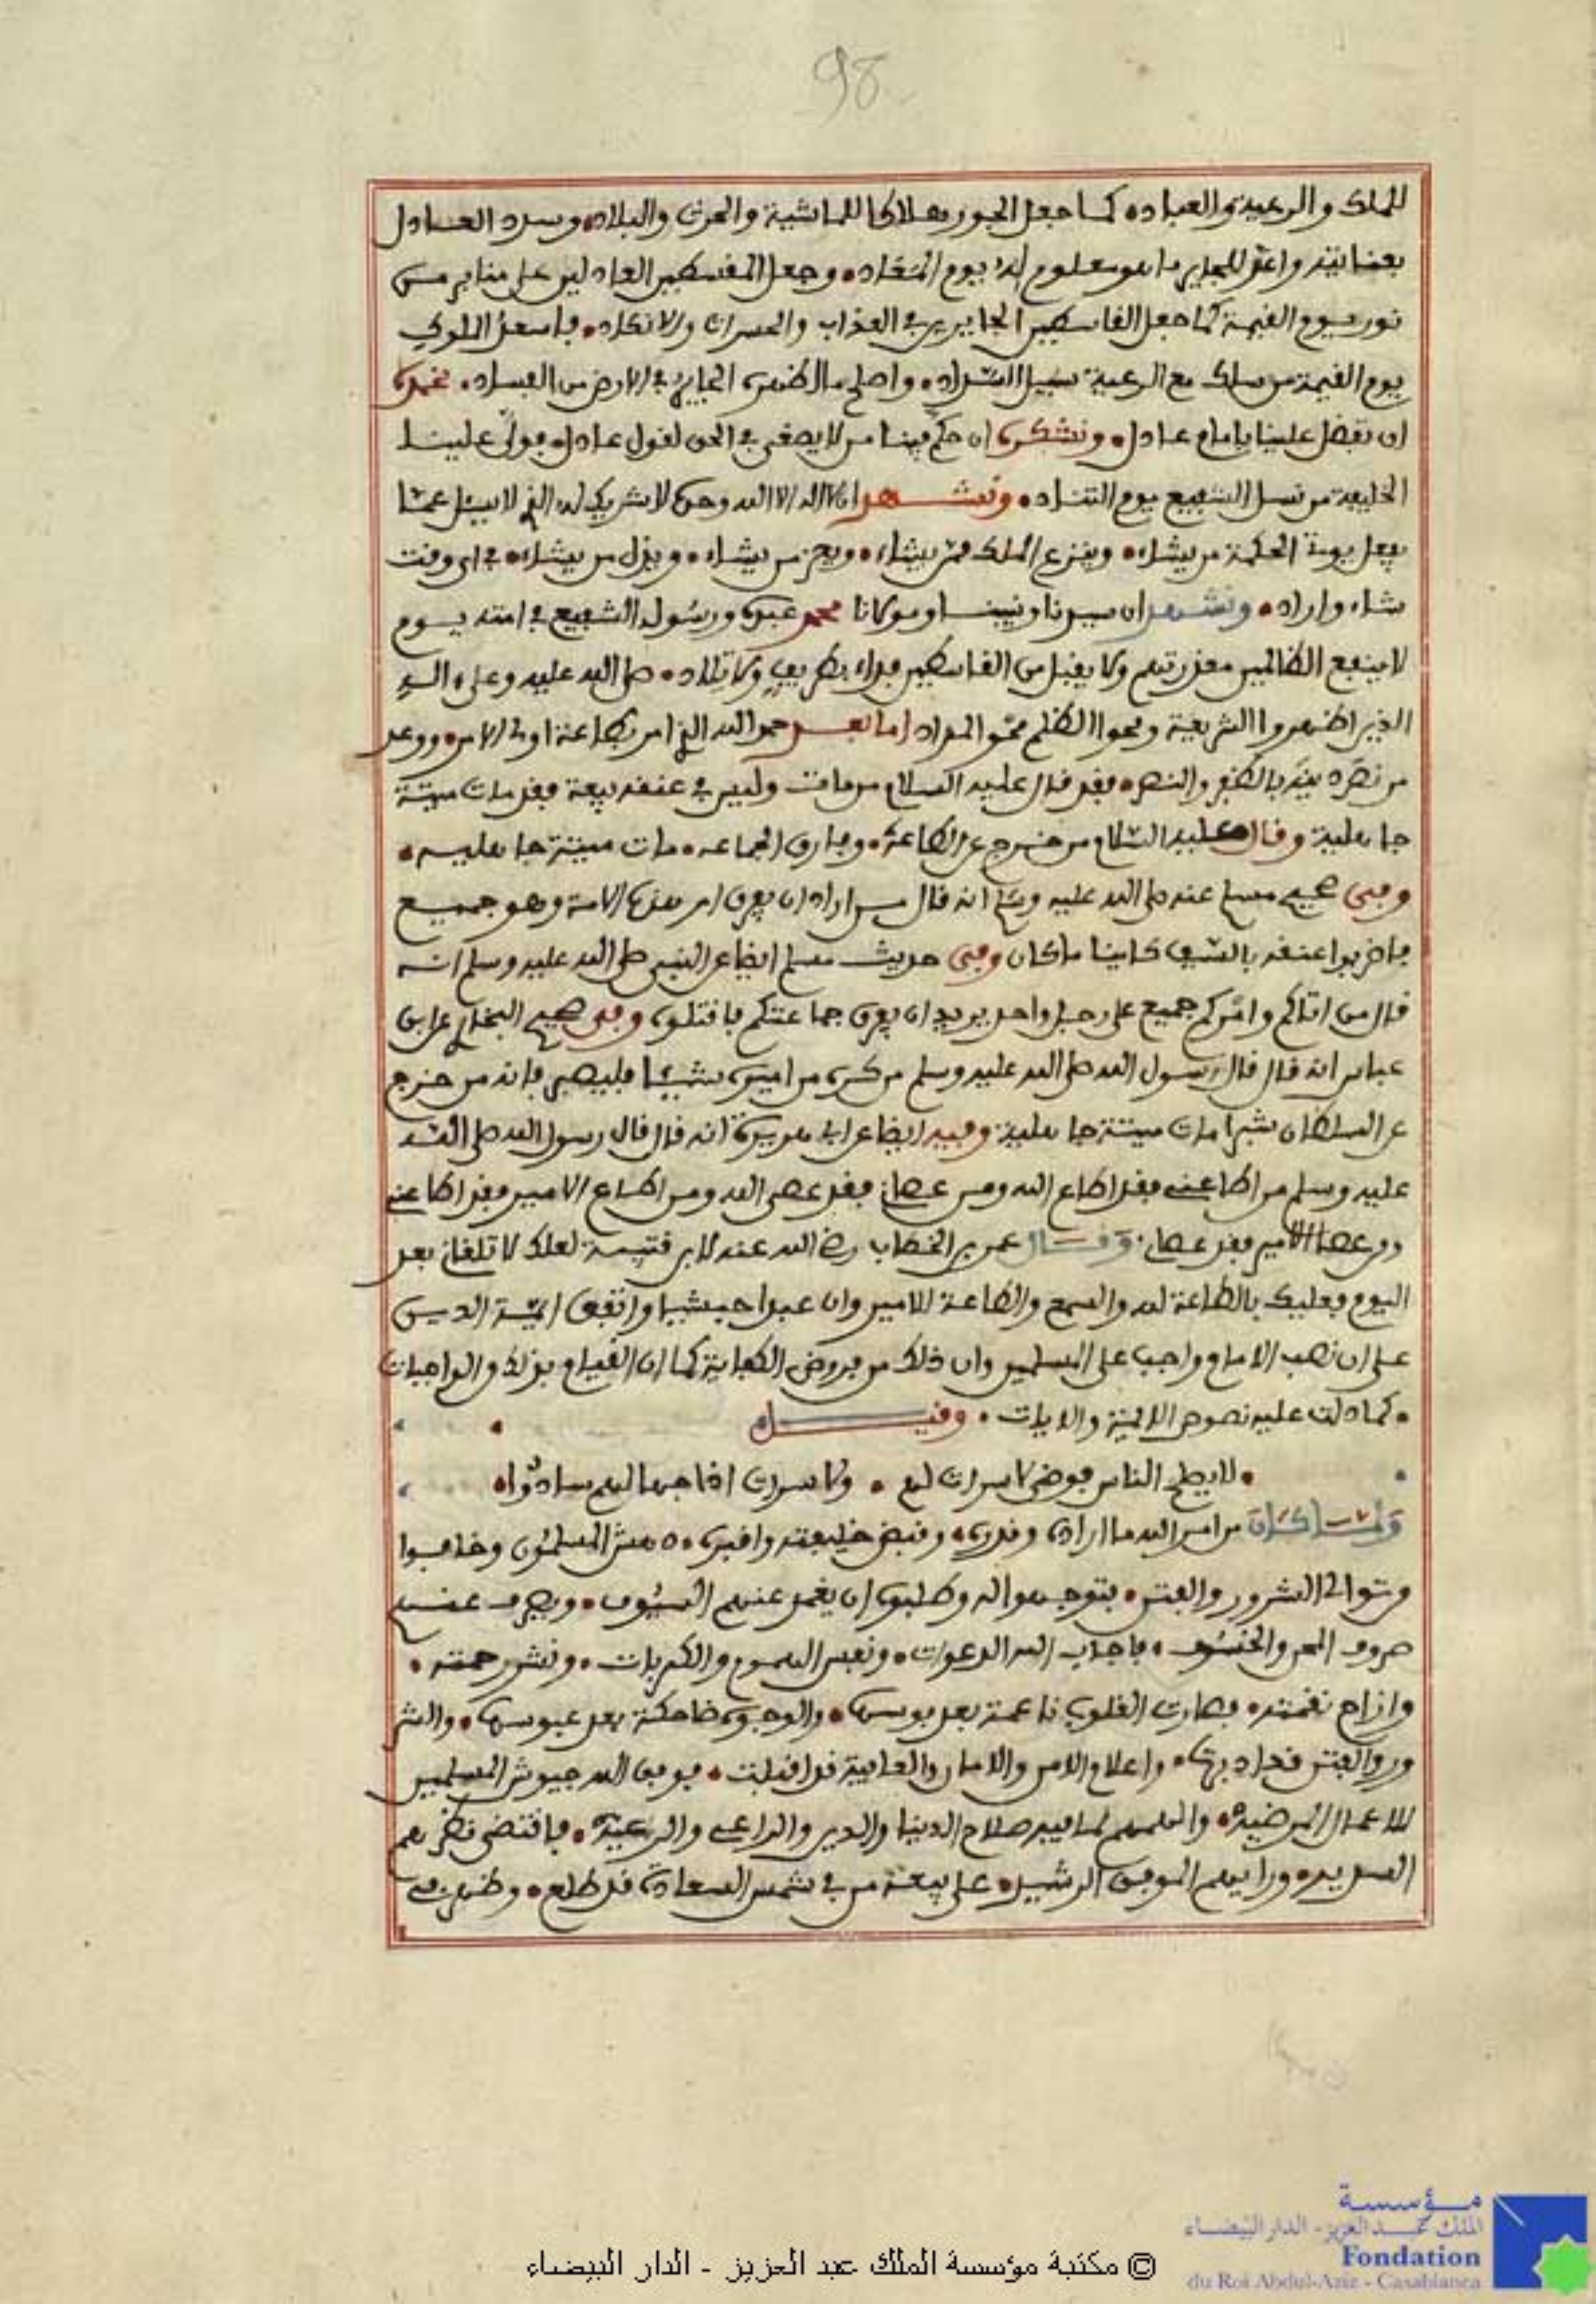 98
للملك والرعية والعباد۰ كما جعل الجور هلاكا للماشية والحرث والبلاد۰ وسدد العادل
بعنايته واعد للجاير ما هو معلوم له يوم المعاد۰ وجعل المقسطين العادلين على منابر من
نور يوم القيمة كما جعل القاسطين الجايرين في العذاب والحسرات والانكاد۰ فاسعد الملوك
يوم القيمة من سلك مع الرعية سبيل السداد۰ واصلح ما اظهره الجاير في الارض من الفساد۰ نحمده
ان تفضل علينا بامام عادل۰ ونشكره ان حكم فينا من لا يصغى في الحق لقول عادل۰ فولى علينا
الخليفة من نسل الشفيع يوم التناد۰ ونشهد ان لا اله الا الله وحده لا شريك له الذي لا يسئل عما
يفعل يوتي الحكمة من يشاء۰ وينزع الملك ممن يشاء۰ ويعز من يشاء۰ ويذل من يشاء۰ في اي وقت
شاء واراد۰ ونشهد ان سيدنا ونبينا ومولانا محمد عبده ورسوله الشفيع في امته يوم
لا ينفع الظالمين معذرتهم ولا يقبل من القاسطين فداء بطريف ولا تلاد۰ صلى الله عليه وعلى اله
الذين اظهروا الشريعة ومحوا الظلم محو المداد اما بعد حمد الله الذي امر بطاعة اولى الامر۰ ووعد
من نصر دينه بالظفر والنصر۰ فقد قال عليه السلام من مات وليس في عنقه بيعة فقد مات ميتة
جاهلية وقال عليه السلام من خرج عن الطاعة۰ وفارق الجماعه۰ مات ميتة جاهليه۰
وفى صحيح مسلم عنه صلى الله عليه وسلم انه قال من اراد ان يفرق امر هذه الامة وهو جميع
فاضربوا عنقه بالسيف كاينا ما كان وفى حديث مسلم ايضا عن النبي صلى الله عليه وسلم انه
قال من اتاكم وامركم جميع على رجل واحد يريد ان يفرق جماعتكم فاقتلوه وفى صحيح البخاري عن ابن
عباس انه قال قال رسول الله صلى الله عليه وسلم من كره من اميره شيئا فليصبر فانه من خرج
عن السلطان شبرا مات ميتة جاهلية وفيه ايضا عن ابي هريرة انه قال قال رسول الله صلى الله
عليه وسلم من اطاعنى فقد اطاع الله ومن عصانى فقد عصى الله ومن اطاع الامير فقد اطاعنى
ومن عصا الامير فقد عصانى وقال عمر بن الخطاب رضي الله عنه لابن قتيمة لعلك لا تلقانى بعد
اليوم فعليك بالطاعة لله والسمع والطاعة للامير وان عبدا حبشيا واتفق ايمة الدين
على ان نصب الامام واجب على المسلمين وان ذلك من فروض الكفاية كما ان القيام بذلك والواجبات
۰ كما دلت عليه نصوص الايمة والايات۰ وقيل
۰ لا يصلح الناس فوضى لا سراة لهم ۰ ولا سراة اذا جهالهم سادوا۰
ولما كان من امر الله ما اراده وقدره۰ وقبض خليفته واقبره۰ دهش المسلمون وخافوا
من توالى الشرور والفتن۰ فتوجهوا له وطلبوه ان يغمد عنهم السيوف۰ ويصرف عنهم
صروف المحن والخسوف۰ فاجاب الله الدعوات۰ ونفس الهموم والكربات۰ ونشر رحمته۰
وازاح نقمته۰ فصارت القلوب ناعمة بعد بوسها۰ والوجوه ضاحكة بعد عبوسها۰ والشر
ور والفتن قد ادبرت۰ واعلام الامن والامان والعافية قد اقبلت۰ فوفق الله جيوش المسلمين
للاعمال المرضيه۰ والهمهم لما فيه صلاح الدنيا والدين والراعى والرعية۰ فاقتضى نظرهم
السديد۰ ورايهم الموفق الرشيد۰ على بيعة من في شمس السعادة قد طلع۰ وظهر من
© مكتبة مؤسسة الملك عبد العزيز - الدار البيضاء
مؤسسة
الملك محمد العزيز - الدار البيضاء
Fondation
du Roi Abdul-Aziz - Casablanca